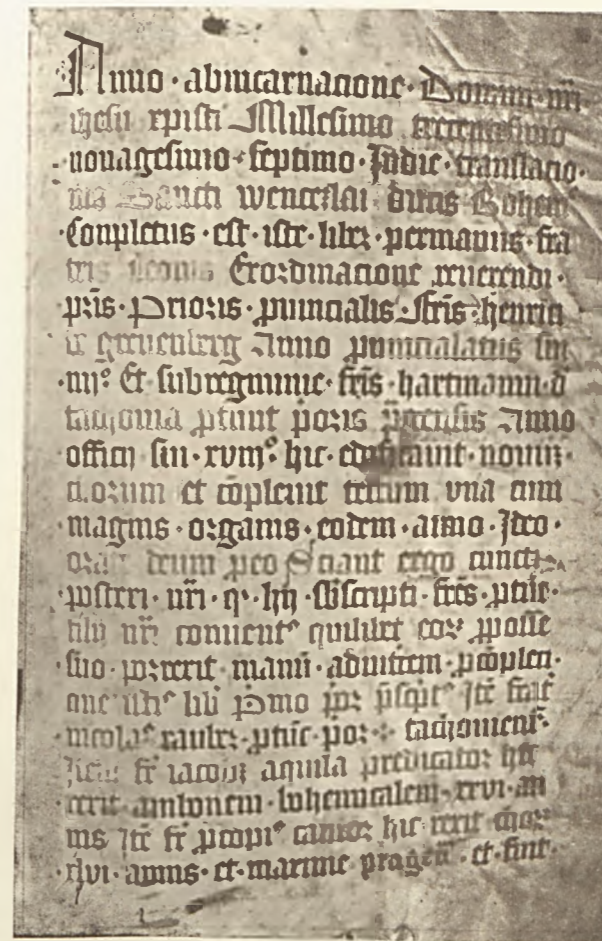 Anno · abincarnacione · Domini · nri
ihesu xpisti Millesimo trecentesimo
· nonagesimo · septimo · Indie · translacio ·
nis Sancti wenceslai ducis Bohem
· Conpletus · est · iste · liber · permanus · fra
tris Exordinacione reuerendi ·
pris · Prioris · puincialis · fris · henrici
Anno puincialatus sui
· iiijº Et subregimine · fris · hartmanni · d
tachouia Anno
officij sui · xvmº · hic · edificauit · nouum ·
et cõpleuit tectum vna cum
· magnis · organis · eodem · anno · Ideo ·
deum peo Sciant ergo cuncti
· posteri · nri · qº · hij · sbscripti · frēs ·
filij nri conuentº quilibet eoꝝ pposse
· suo · porrexit · manū · aduitrem · pcõpleci ·
one istiº libri Pmo Itē frat
· nicolaº por · tachouienſ
fr iacobus aquila predicator hic
rexit · ambonem · bohemicalem · xxvi · an
nis Itē fr pcopiº cantor hic rexit chorū
· xvi · annis · et · maxime prageñ · et · sint ·